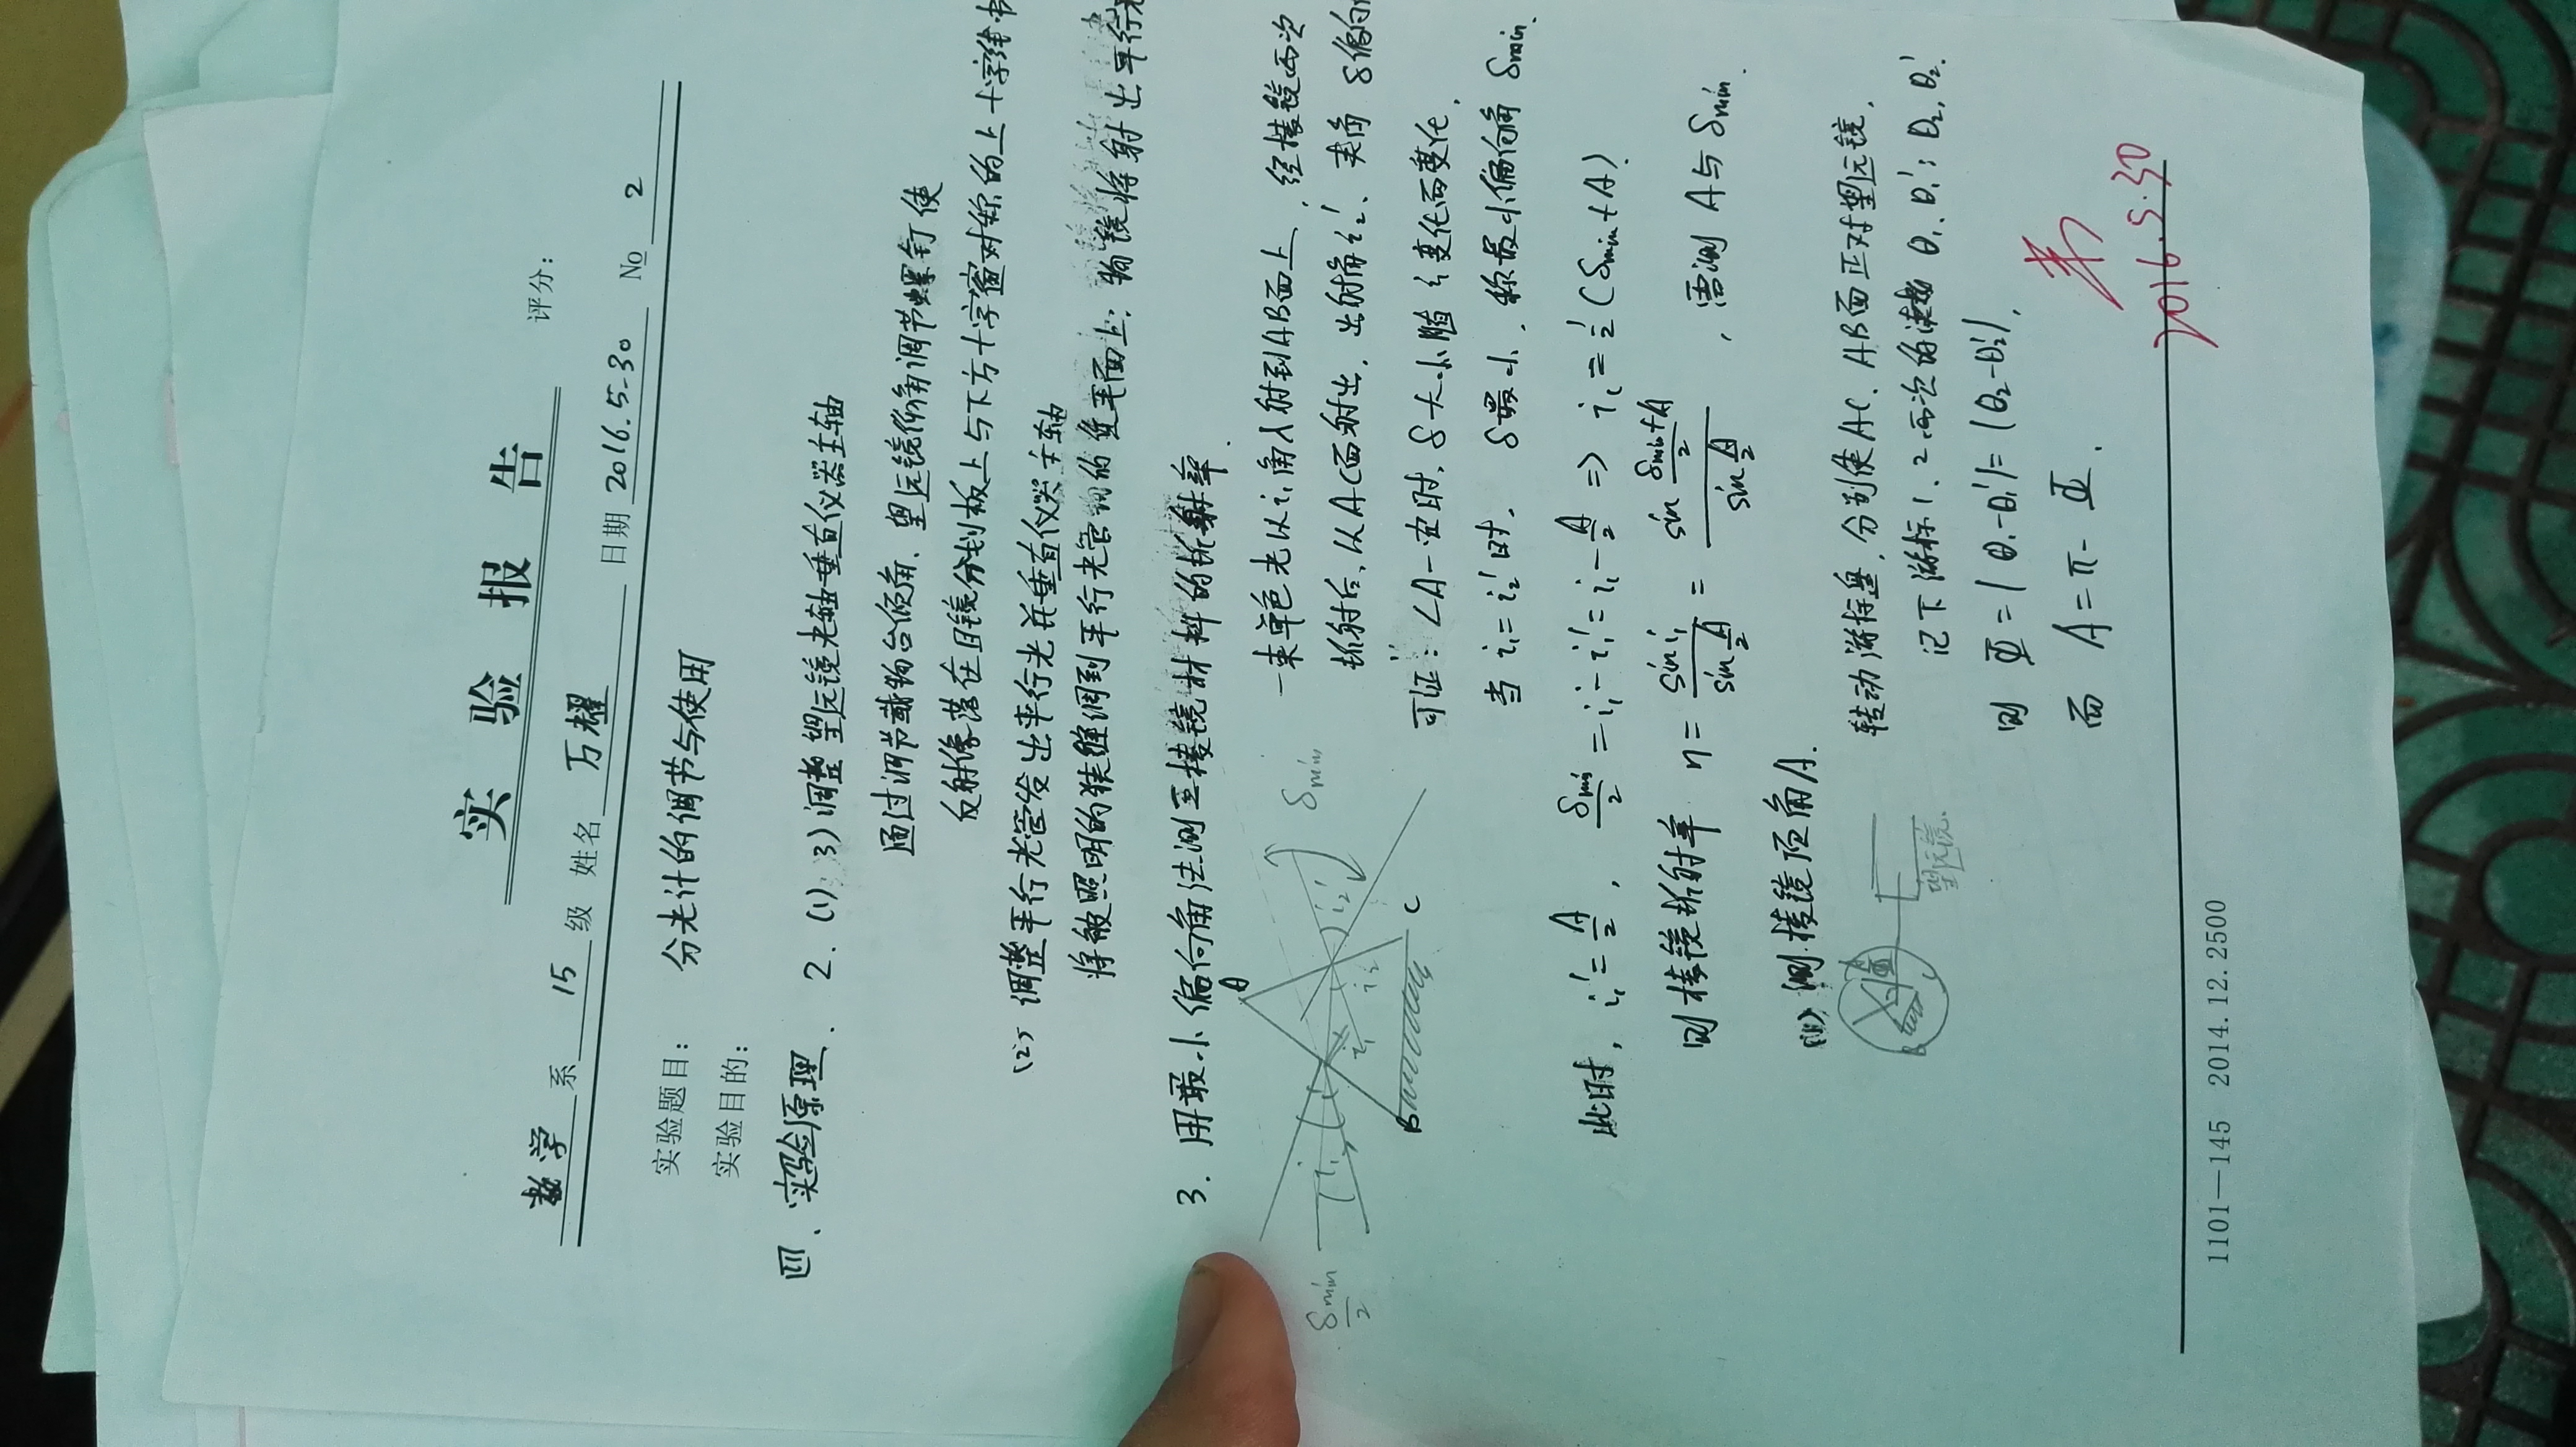 实 验 报 告
评分:
数学 系 15 级 姓名 万耀 日期 2016.5.30 № 2
实验题目: 分光计的调节与使用
实验目的:
四、实验原理、 2. (1)(3)调整望远镜光轴垂直仪器主轴
通过调节载物台倾角、望远镜俯角调节螺钉使
反射像落在目镜分划板上与下方十字窗对称的上十字线中
(2) 调整平行光管发出平行光并垂直仪器主轴
将被照明的狭缝调到平行光管物镜焦平面上,物镜将射出平行光
3. 用最小偏向角法测三棱镜材料的折射率.
一束单色光以i₁角入射到AB面上,经棱镜两次
折射后,从AC面射出,出射角i₂′、夹角δ偏向
可证:∠A一定时,δ大小随i₁变化而变化.
当i₁=i₂′时,δ最小,称最小偏向角δmin.
A
B
C
δmin
δmin/2
i₁
i₁′
i₂
i₂′
此时, i₁′=A/2, δmin/2 = i₁-i₁′= i₁-A/2 => i₁=1/2(δmin+A).
则棱镜折射率 n = sin i₁/sin A/2 = sin (δmin+A)/2 / sin A/2 , 需测A与δmin.
测棱镜顶角A.
望远镜
转动游标盘,分别使AC、AB面正对望远镜.
记下游标1、2两次的读数θ₁、θ₁′;θ₂,θ₂′
则 Φ=|θ₁-θ₁′|=|θ₂-θ₂′|,
而 A=π-Φ.
2016.5.30
1101—145 2014.12.2500